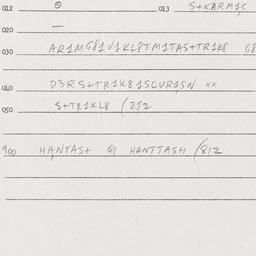 012 ⊙ 013 S+KARM1C
020 —
030 AR1MG81V1KL8TM1TAS+TR1K8 G8
040 D3RS+TR1K81SCUR1SN xx
050 S+TR1KL8 /252
900 HANTAS+ 81 HANTTASH /812